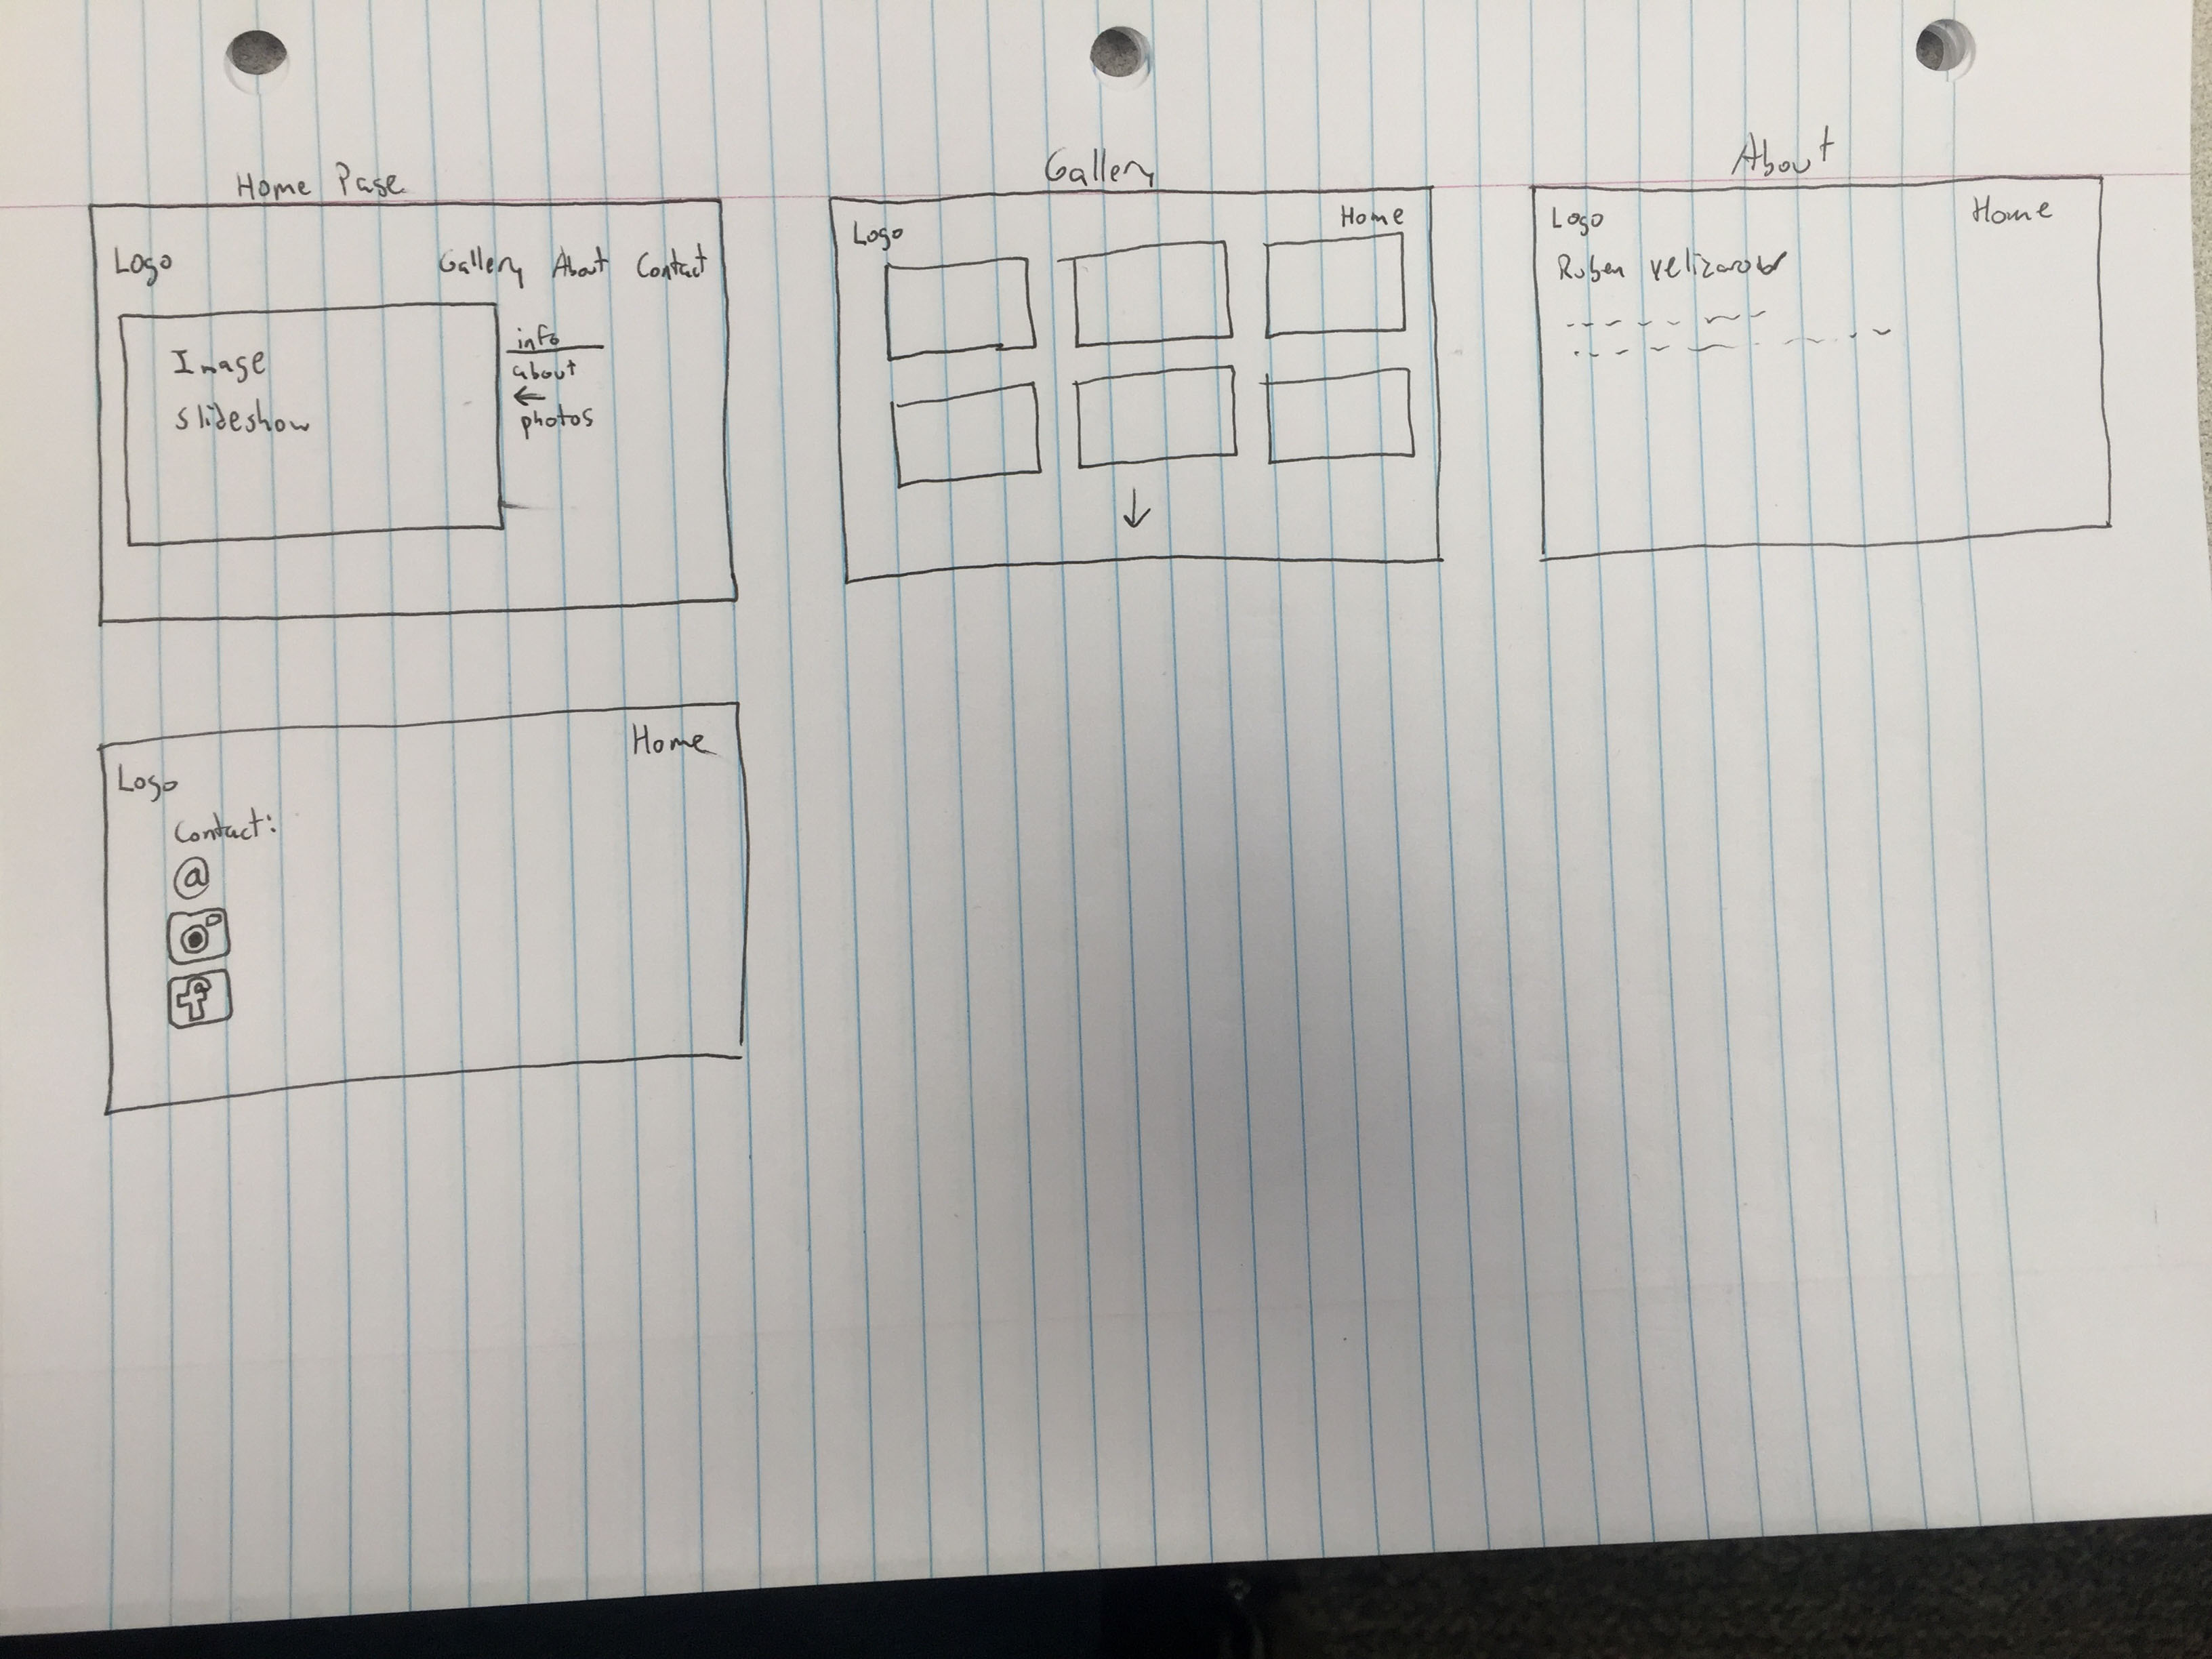 Home Page
Logo
Gallery About Contact
Image
slideshow
info
about
photos
Gallery
Logo
Home
About
Logo
Home
Ruben
Home
Logo
Contact:
@